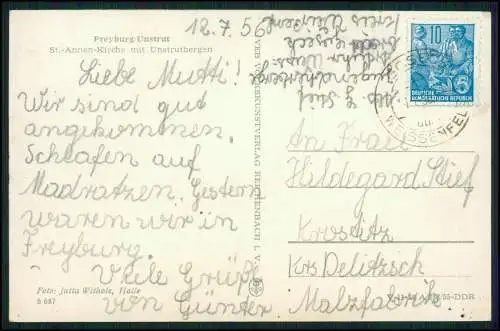 Freyburg-Unstrut
St.-Annen-Kirche mit Unstrutbergen
12.7.56
Liebe Mutti!
Wir sind gut
angekommen.
Schlafen auf
Madratzen. Gestern
waren wir in
Freyburg.
Viele Grüße
von Günter
Foto: Jutta Witholz, Halle
S 087
VEB VOLKSKUNSTVERLAG REICHENBACH I. V.
Abs. G. Stief
10
DEUTSCHE
DEMOKRATISCHE REPUBLIK
WEISSENFELS
An Frau
Hildegard Stief
Krostitz
Krs Delitzsch
Malzfabrik